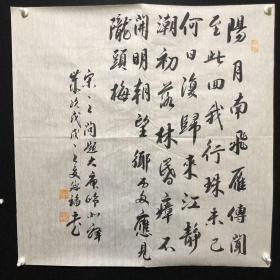 陽月南飛雁傳聞
至此回我行珠未已
何日復歸來江靜
潮初落林昏瘴不
開明朝望鄉處應見
隴頭梅
宋之问題大庾嶺北驛
歲次戊戌之夏